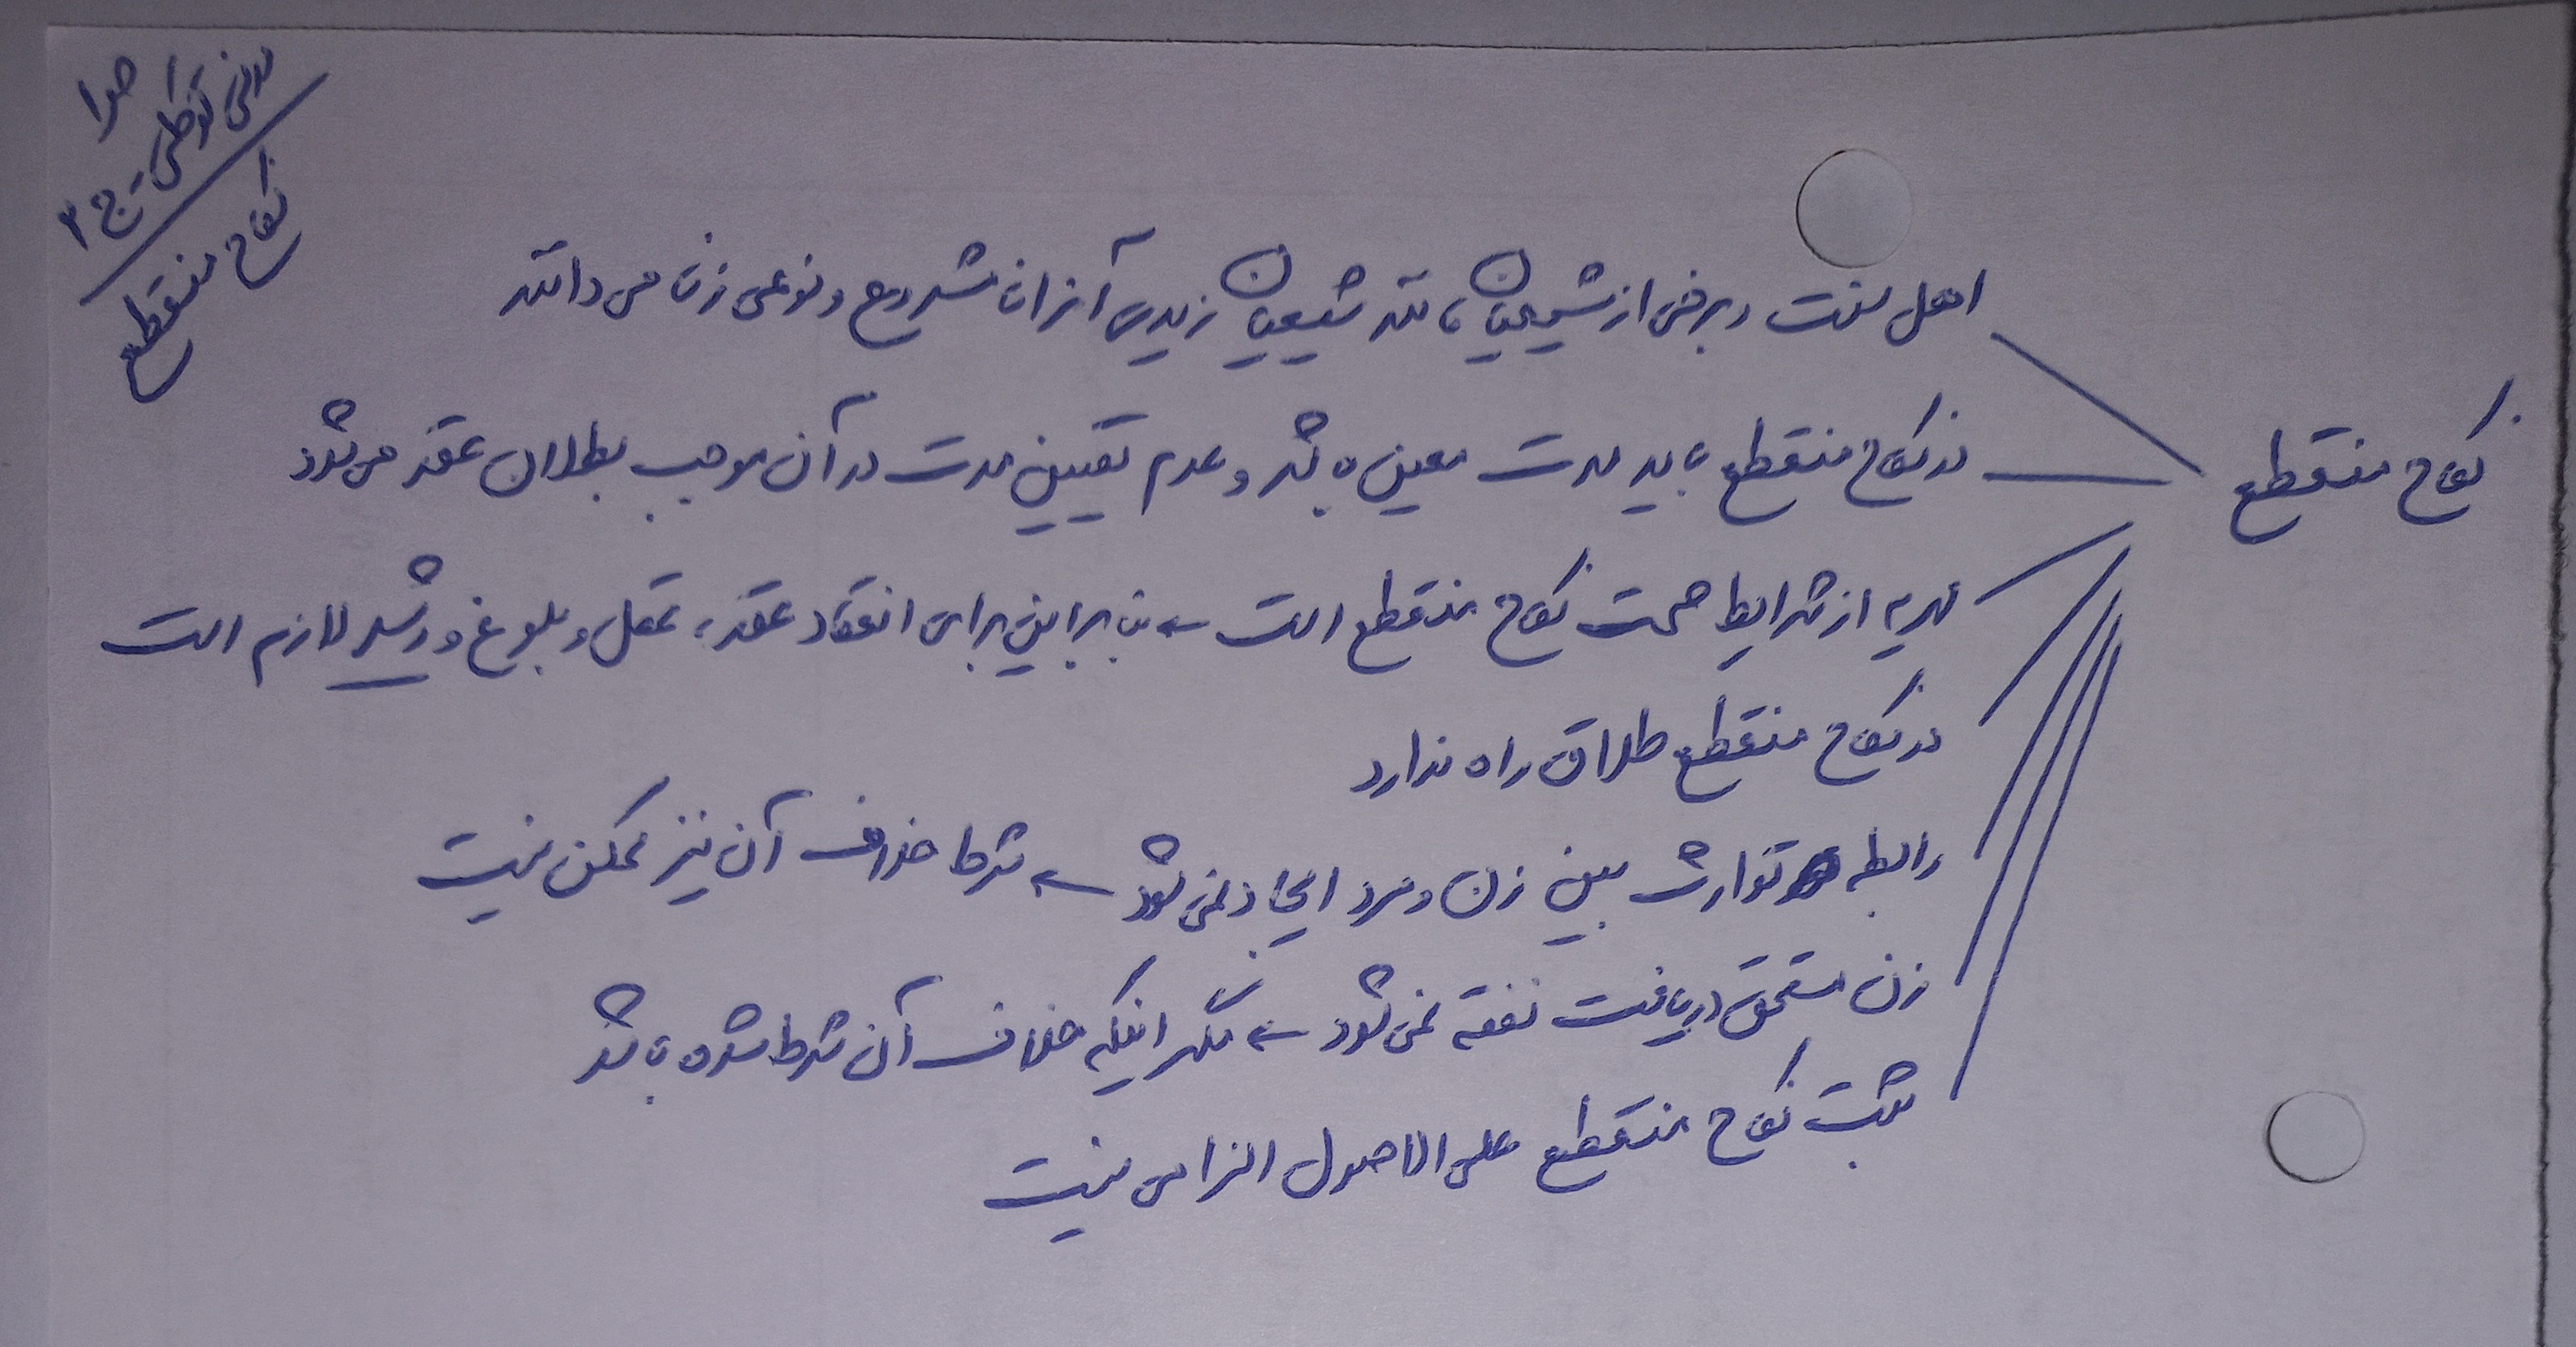 مدنی توکلی - ج ۳
نکاح منقطع
نکاح منقطع
اهل سنت و برخی از شیعیان مانند شیعیان زیدی آنرا نامشروع و نوعی زنا می دانند
در نکاح منقطع باید مدت معین باشد و عدم تعیین مدت در آن موجب بطلان عقد می شود
مهریه از شرایط صحت نکاح منقطع است ← بنابراین برای انعقاد عقد، عقل و بلوغ و رشد لازم است
در نکاح منقطع طلاق راه ندارد
رابطه توارث بین زن و مرد ایجاد نمی شود ← شرط خلاف آن نیز ممکن نیست
زن مستحق دریافت نفقه نمی شود ← مگر اینکه خلاف آن شرط شده باشد
ثبت نکاح منقطع علی الاصول الزامی نیست